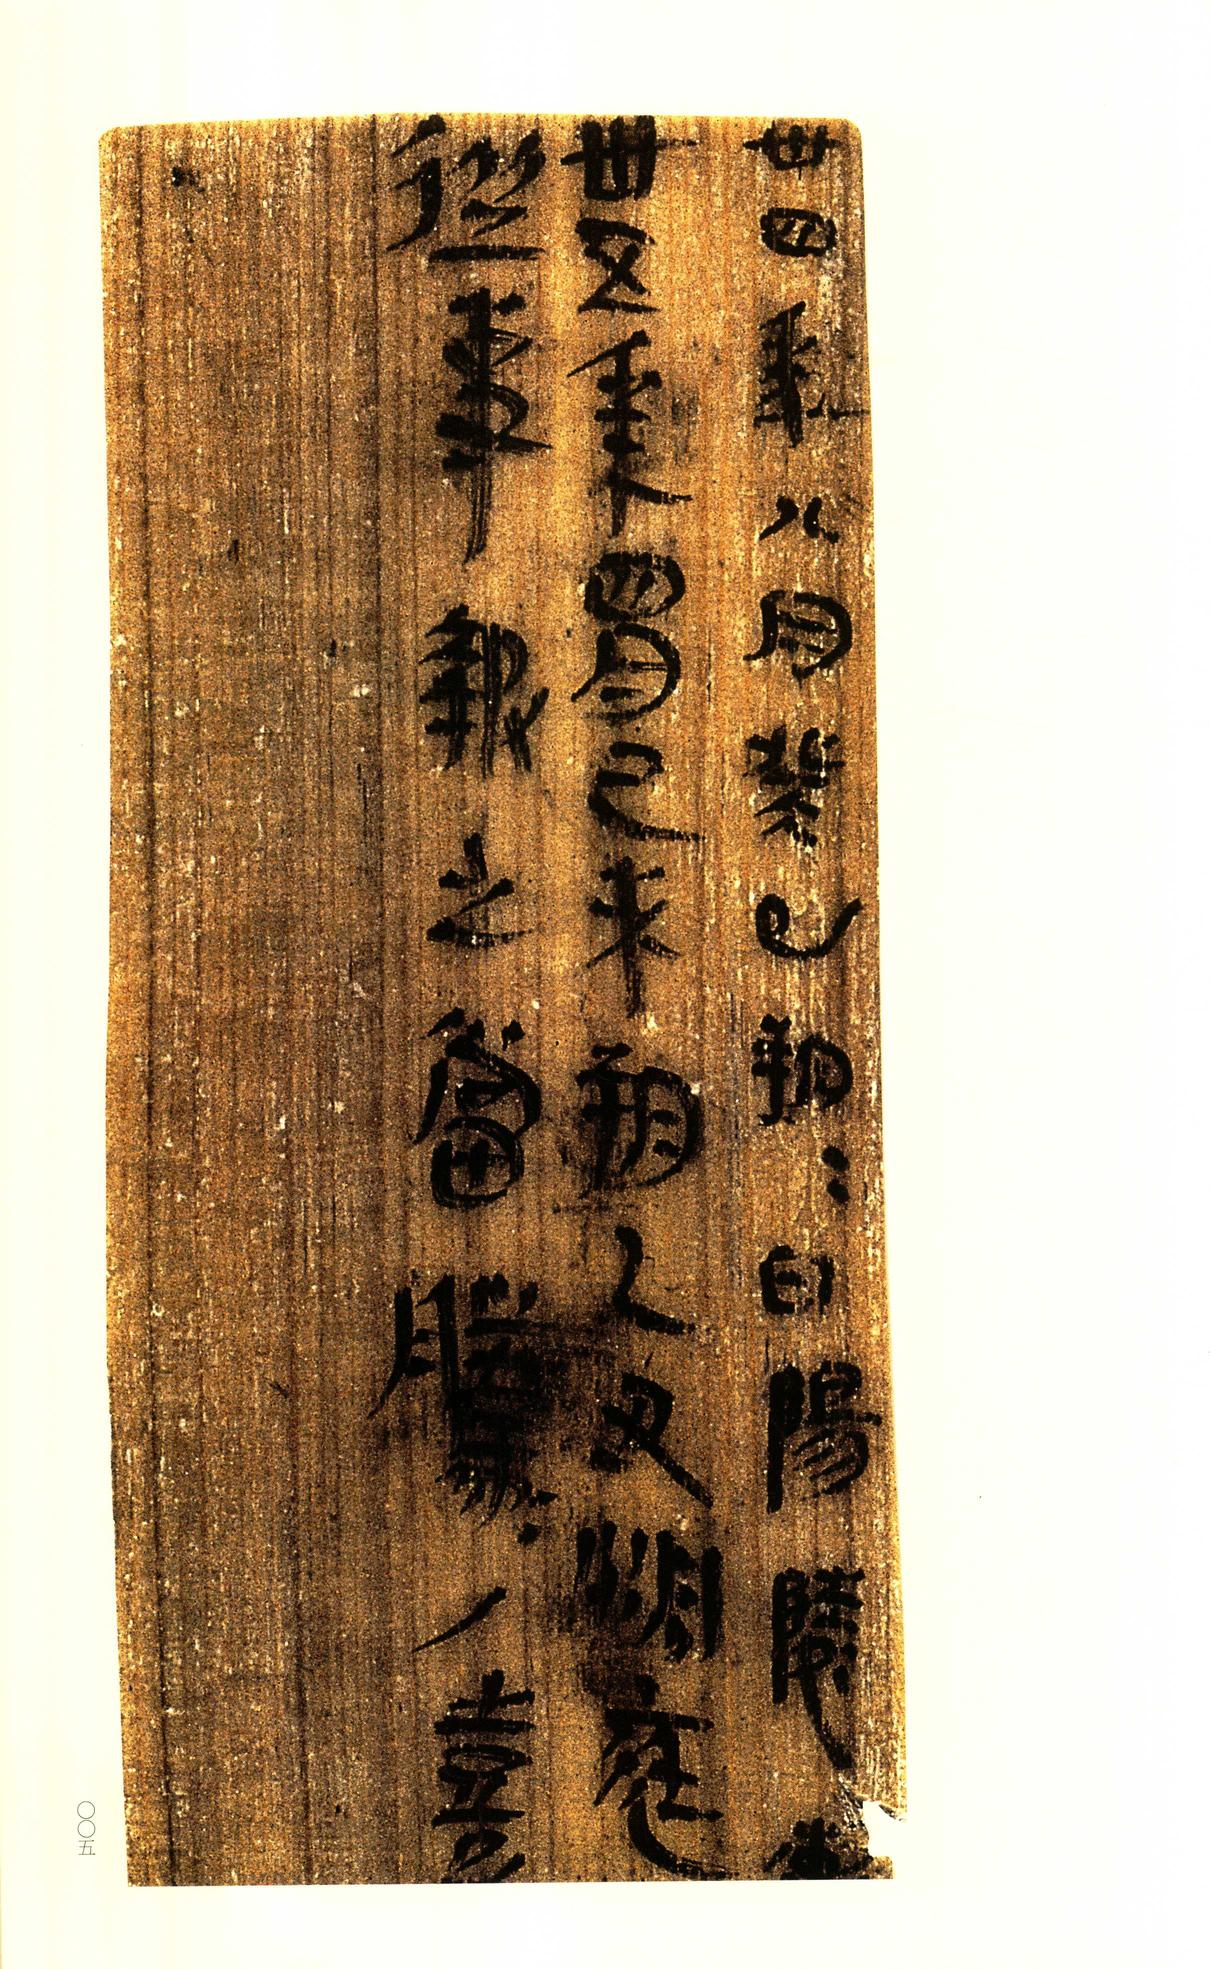 卅四年八月癸巳朔=日陽陵
卅五年四月己未朔乙丑洞庭
從事報之當騰=/嘉
〇〇五